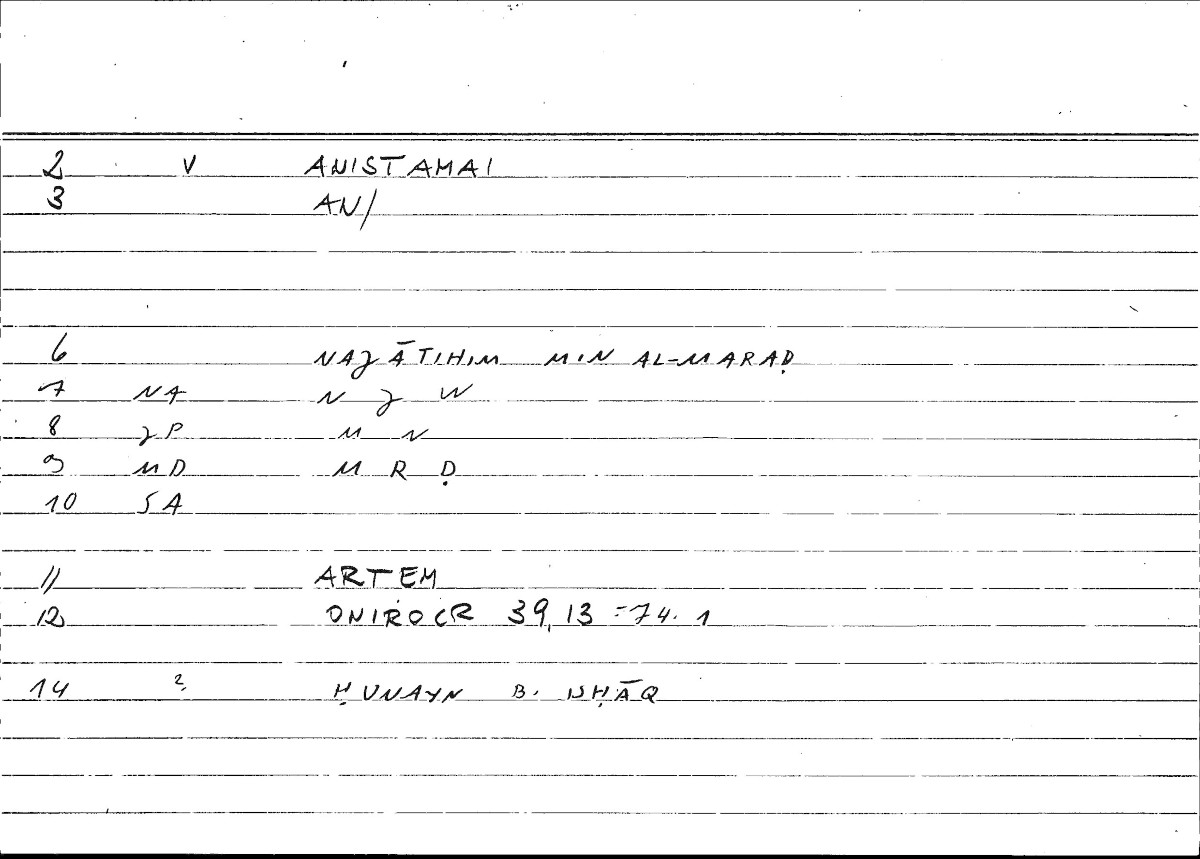 2 V ANISTAMAI
3 AN/
6 NAJĀTIHIM MIN AL-MARAḌ
7 NA N J W
8 JP M N
9 MD M R Ḍ
10 SA
11 ARTEM
12 ONIROCR 39,13 = 74.1
14 2 ḤUNAYN B. ISḤĀQ